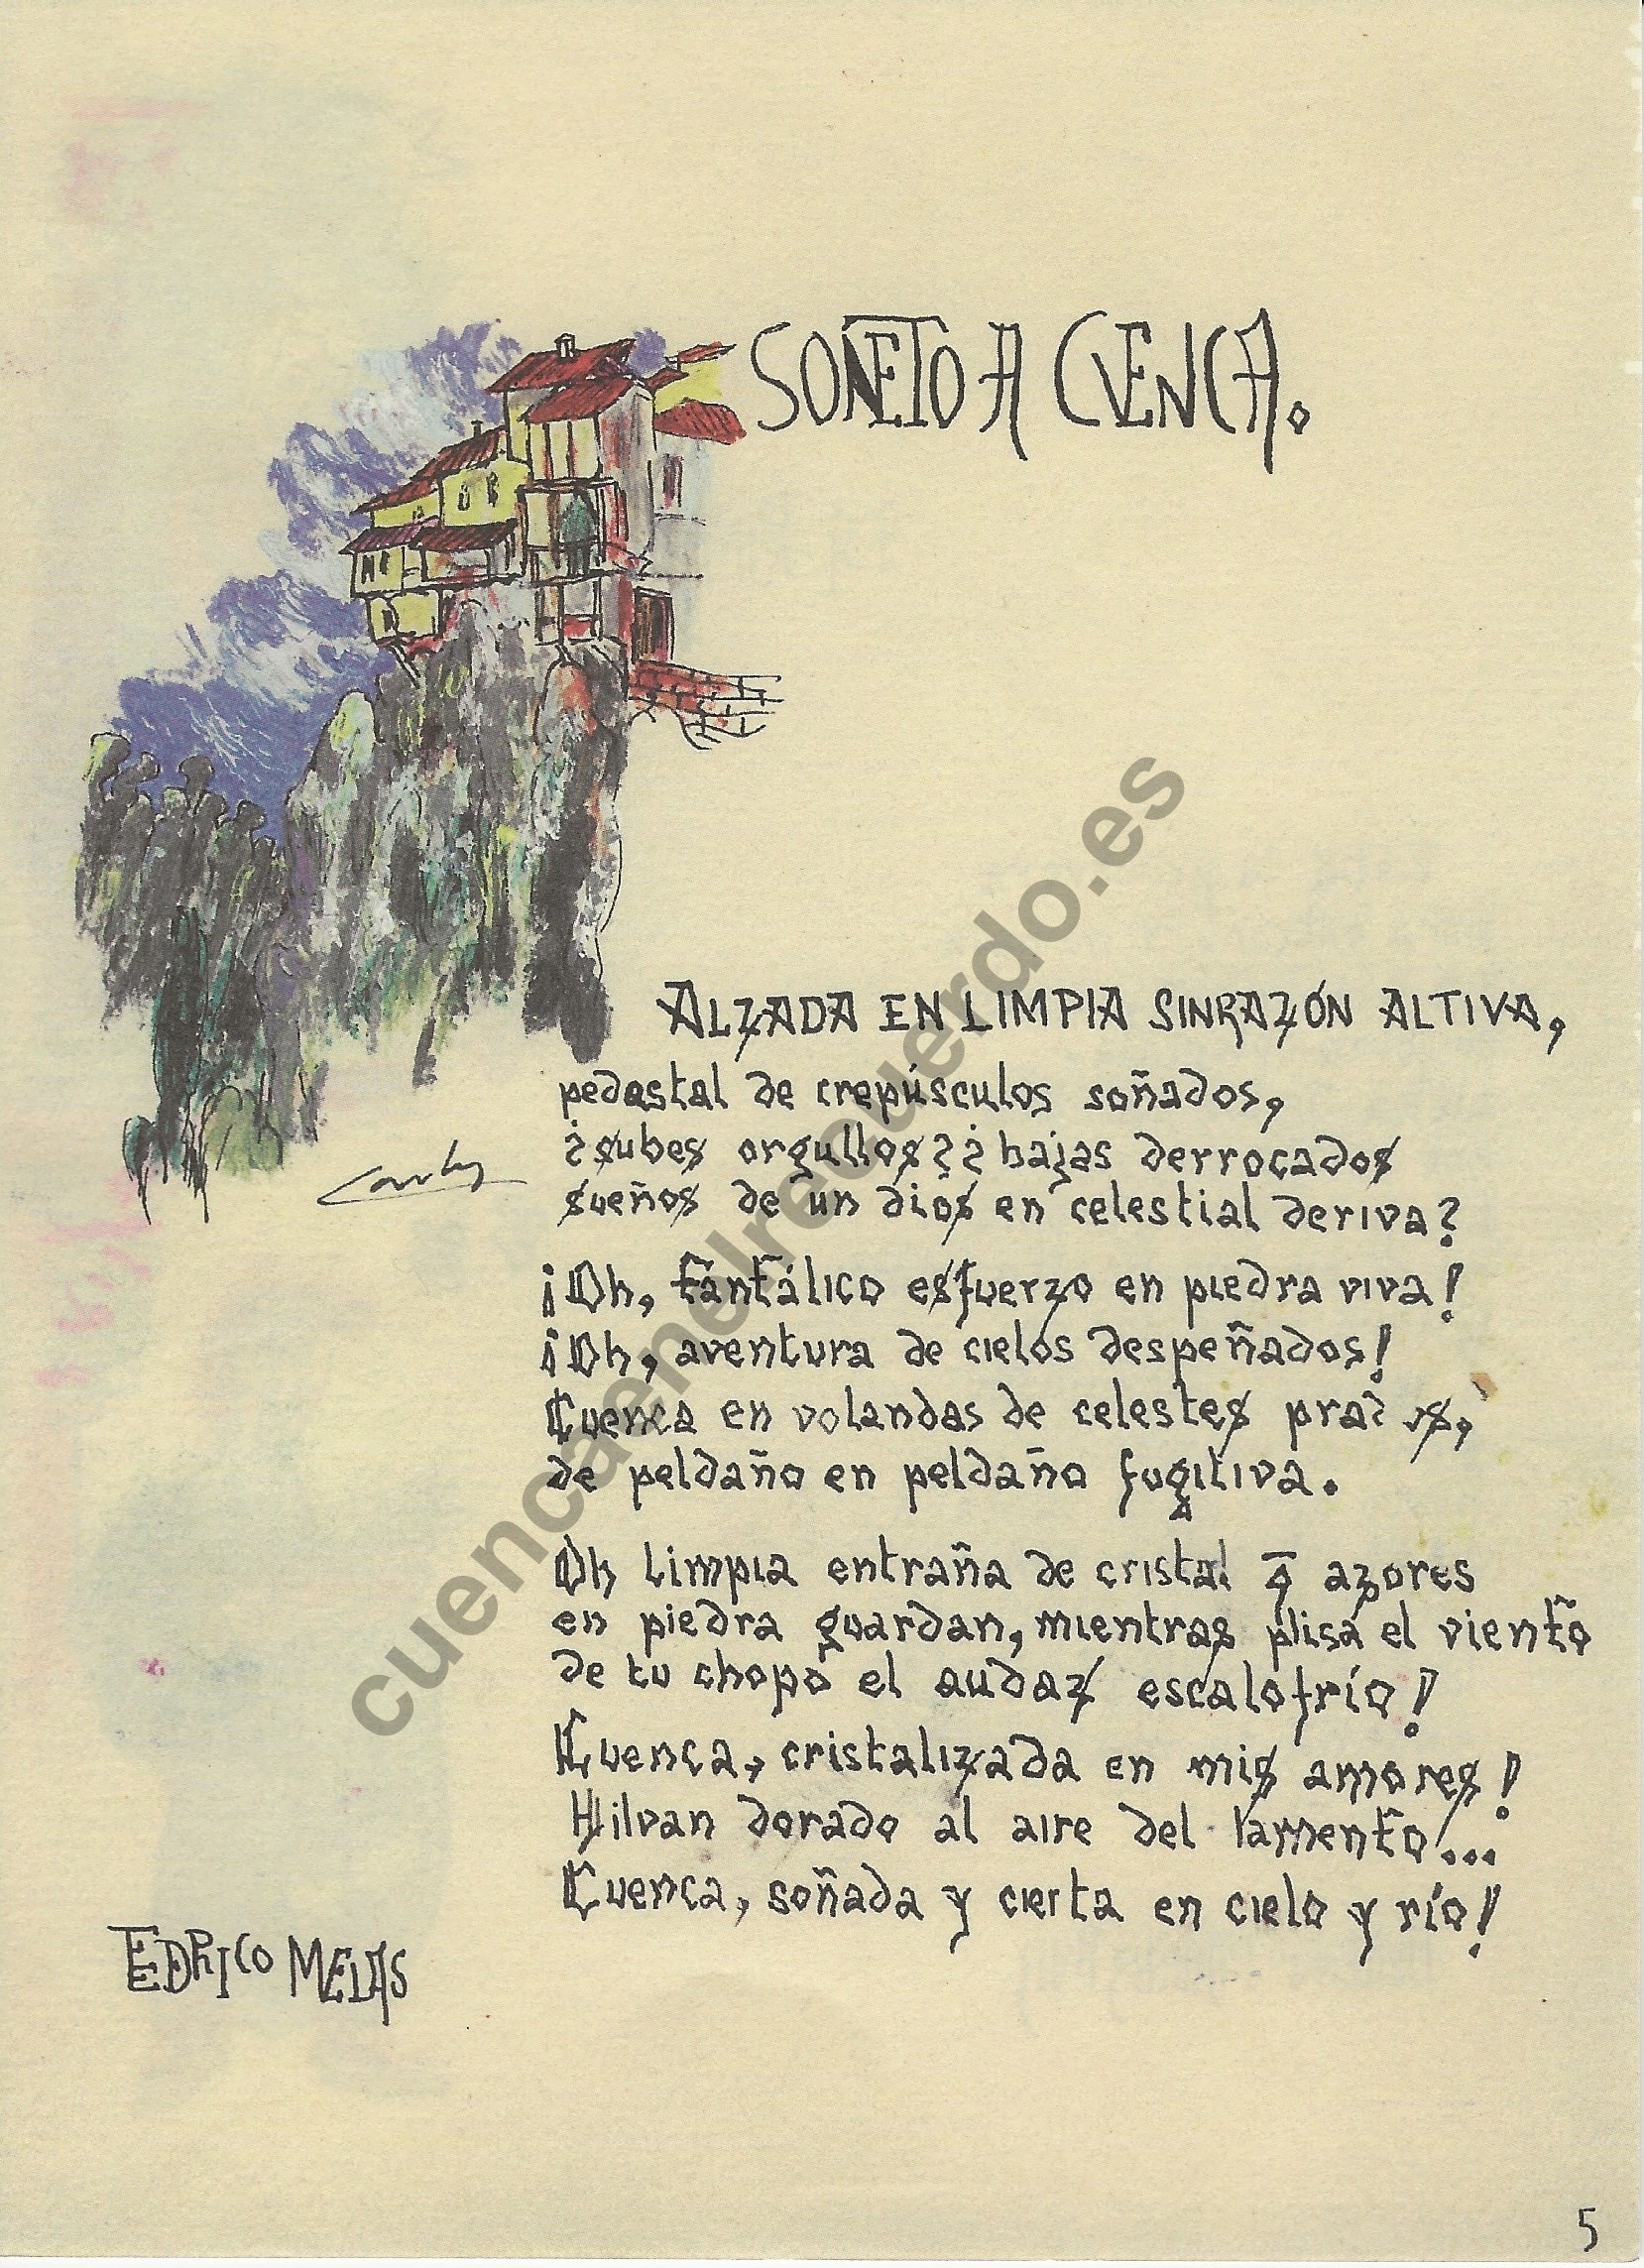 SOÑETO A CUENCA.
ALZADA EN LIMPIA SINRAZÓN ALTIVA,
pedastal de crepúsculos soñados,
¿subes orgullos? ¿bajas derrocados
sueños de un dios en celestial deriva?
¡Oh, tantálico esfuerzo en piedra viva!
¡Oh, aventura de cielos despeñados!
Cuenca en volandas de celestes
de peldaño en peldaño fugitiva.
Oh limpia entraña de cristal q̄ azores
en piedra guardan, mientras plisa el viento
de tu chopo el audaz escalofrío!
Cuenca, cristalizada en mis amores!
Hilvan dorado al aire del lamento...
Cuenca, soñada y cierta en cielo y río!
EDRICO MELAS
5
cuencaenelrecuerdo.es